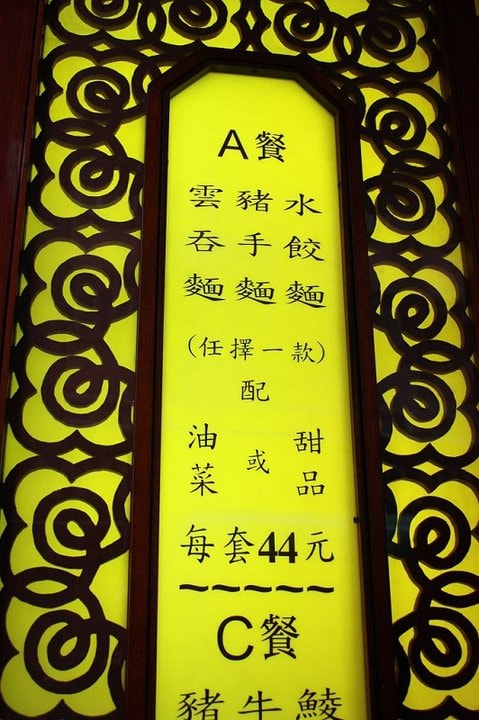 A餐
雲豬水
吞手餃
麵麵麵
(任擇一款)
配
油菜 或 甜品
每套44元
~~~~~
C餐
豬牛鯪